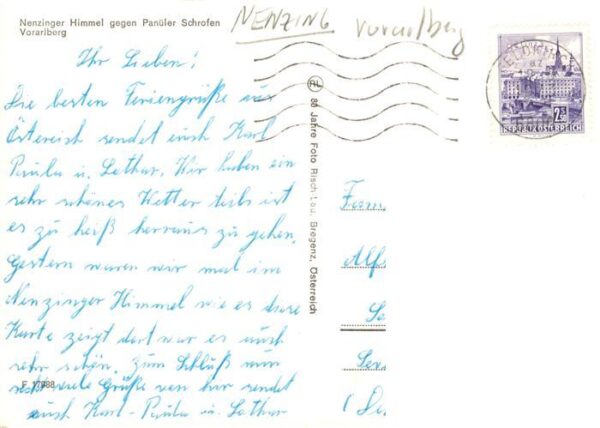 Nenzinger Himmel gegen Panüler Schrofen
Vorarlberg
NENZING Vorarlberg
Ihr Lieben!
Die besten Feriengrüße aus
Östereich sendet euch Karl
Paula u. Lothar. Wir haben ein
sehr schönes Wetter teils ist
es zu heiß herraus zu gehen.
Gestern waren wir mal im
Nenzinger Himmel wie es diese
Karte zeigt dort war es auch
sehr schön. Zum Schluß nun
recht viele Grüße von hir sendet
euch Karl-Paula u. Lothar
F 17988
RL
80 Jahre Foto Risch-Lau, Bregenz, Österreich
2.5
REPUBLIK ÖSTERREICH
Fam
Alf